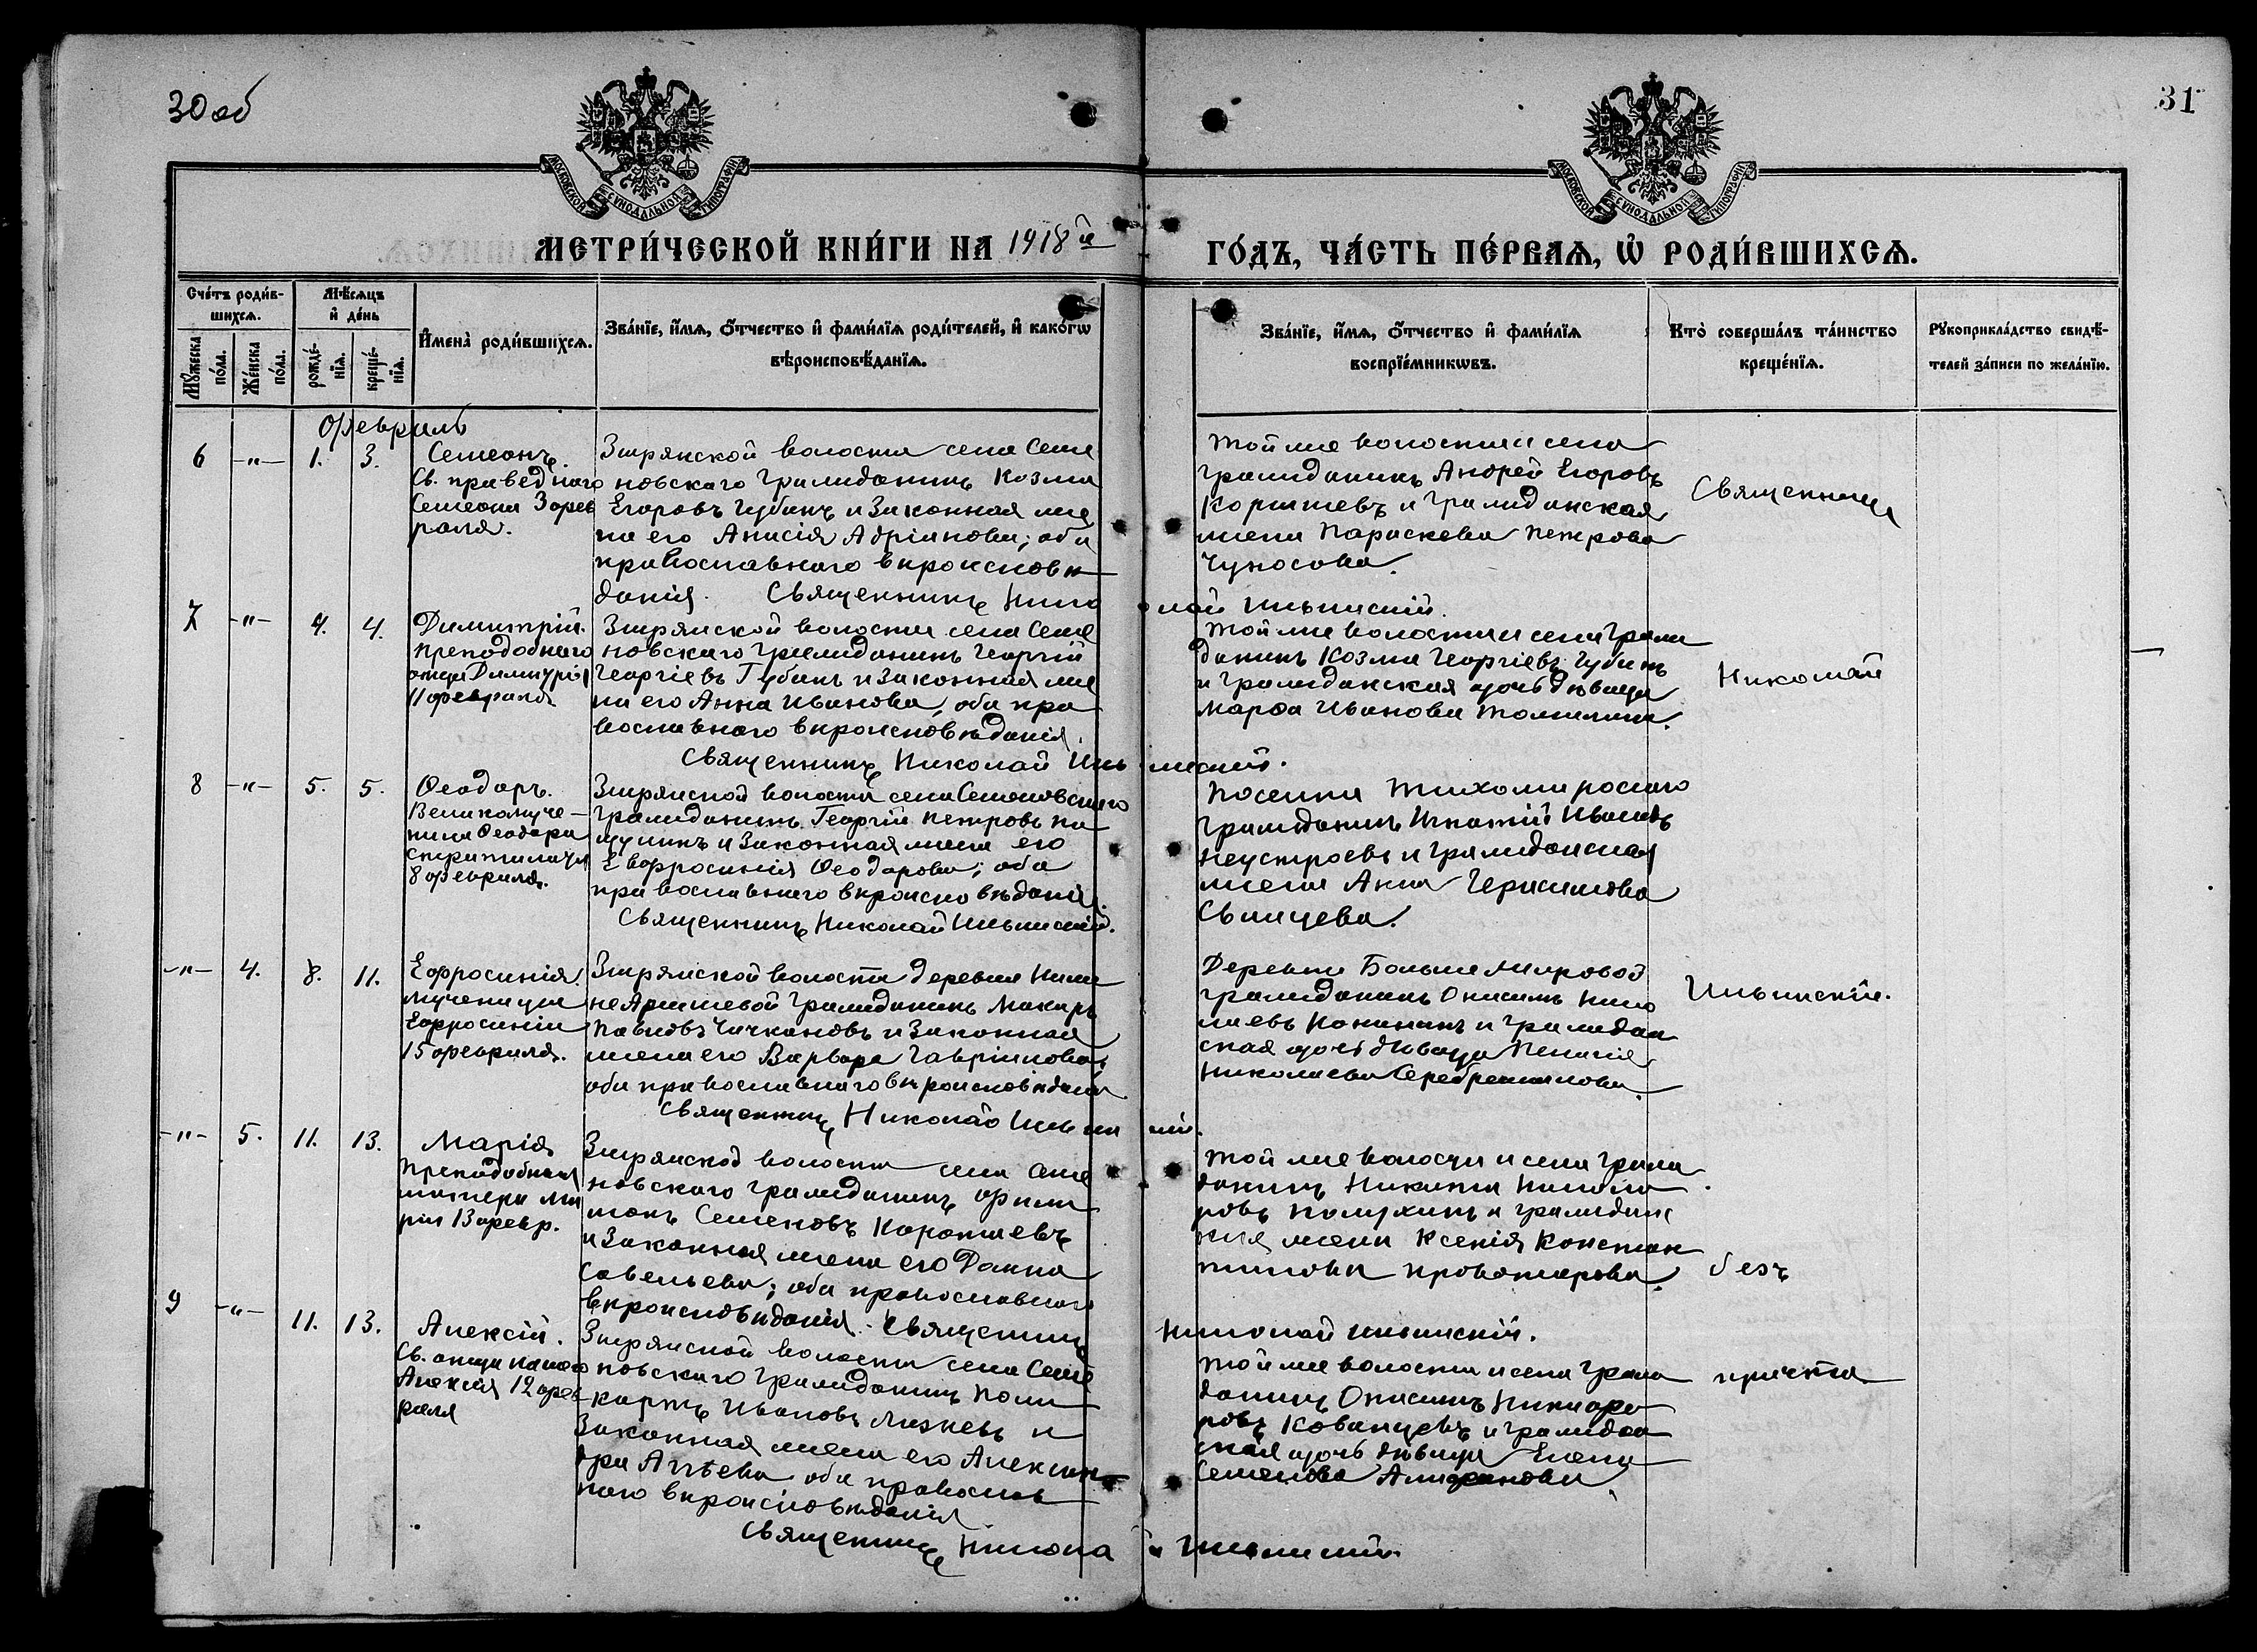 30 об
31
МОСКОВСКОЙ СѴНОДАЛЬНОЙ ТИПОГРАФІИ
МОСКОВСКОЙ СѴНОДАЛЬНОЙ ТИПОГРАФІИ
МЕТРИ́ЧЕСКОЙ КНИ́ГИ НА 1918й
ГО́ДЪ, ЧА́СТЬ ПЕ́РВАѦ, Ѡ҆ РОДИ́ВШИХСѦ.
Сче́тъ роди́в-
шихсѧ.
Мѣ́сѧцъ
и҆ де́нь
Мꙋ́жеска по́ла.
Же́нска по́ла.
рожде́-нїѧ.
креще́-нїѧ.
И҆мена̀ роди́вшихсѧ.
Зва́нїе, и҆́мѧ, ѻ҆́тчество и҆ фами́лїѧ роди́телей, и҆ како́гѡ
вѣроисповѣ́данїѧ.
Зва́нїе, и҆́мѧ, ѻ҆́тчество и҆ фами́лїѧ
воспрїе́мникѡвъ.
Кто̀ соверша́лъ та́инство
креще́нїѧ.
Рꙋкоприкла́дство свидѣ́-
телей за́писи по жела́нїю.
Февраль
6 -"- 1. 3.
Симеонъ.
Св. праведнаго
Симеона 3 фев
раля.
Зырянской волости села Семе
новскаго гражданинъ Козма
Егоровъ Губинъ и законная же
на его Анисія Адріанова; оба
православнаго вѣроисповѣ
данія. Священникъ Николай Ильинскій.
Той же волости и села
гражданинъ Андрей Егоровъ
и гражданская
жена Параскева Петрова
Чуносова.
Священникъ
7 -"- 4. 4.
Димитрій.
Преподобнаго
отца Димитрія
11 февраля
Зырянской волости села Семе
новскаго гражданинъ Георгій
Георгіевъ Губинъ и законная же
на его Анна Иванова, оба пра
вославнаго вѣроисповѣданія.
Священникъ Николай Ильинскій.
Той же волости и села граж
данинъ Козма Георгіевъ Губинъ
и гражданская дочь дѣвица
Марѳа Иванова Томилина.
Николай
8 -"- 5. 5.
Ѳеодоръ.
Великомуче-
ника Ѳеодора
Стратилата
8 февраля.
Зырянской волости села Семеновскаго
гражданинъ Георгій Петровъ Па
и законная жена его
Евфросинія Ѳеодорова; оба
православнаго вѣроисповѣданія.
Священникъ Николай Ильинскій.
Поселка Тихомировскаго
гражданинъ Игнатій Ивановъ
Неустроевъ и гражданская
жена Анна Герасимова
Сванцева.
-"- 4. 8. 11.
Ефросинія.
Мученицы
Ефросиніи
15 февраля.
Зырянской волости деревни Ниж
не Ярышевой гражданинъ Макаръ
Павловъ Чичкановъ и законная
жена его Варвара Гавріилова,
оба православнаго вѣроисповѣданія
Священникъ Николай Ильинскій.
Деревни Больше Мировой
гражданинъ Онисимъ Нико
лаевъ Кониннъ и граждан
ская дочь дѣвица Пелагія
Николаева Серебренникова.
Ильинскій.
-"- 5. 11. 13.
Марія
Преподобныя
матери Ма
ріи 13 февр.
Зырянской волости села Семе
новскаго гражданинъ Фили
монъ Семеновъ Коротаевъ
и законная жена его Домна
Савельева; оба православнаго
вѣроисповѣданія. Священникъ Николай Ильинскій.
Той же волости и села граж
данинъ Никита Никифо
ровъ Полухинъ и граждан
ская жена Ксенія Констан
тинова Провоторова.
безъ
9 -"- 11. 13.
Алексій.
Св. отца нашего
Алексія 12 фев
раля
Зырянской волости села Семе
новскаго гражданинъ Поли
карпъ Ивановъ Мизневъ и
законная жена его Алексан
дра Аггѣева оба православ
наго вѣроисповѣданія
Священникъ Николай Ильинскій.
Той же волости и села граж
данинъ Онисимъ Никифо
ровъ Кованцевъ и граждан
ская дочь дѣвица Елена
Семенова
причта